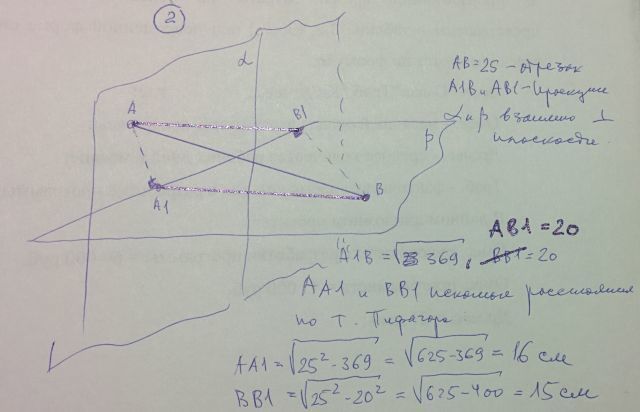 2
α
A
B1
A1
B
β
AB=25 - отрезок
A1B и AB1 - проекции
α и β взаимно ⊥
плоскости.
AB1 = 20
A1B = √369, BB1 = 20
AA1 и BB1 искомые расстояния
по т. Пифагора
AA1 = √25²-369 = √625-369 = 16 см
BB1 = √25²-20² = √625-400 = 15 см